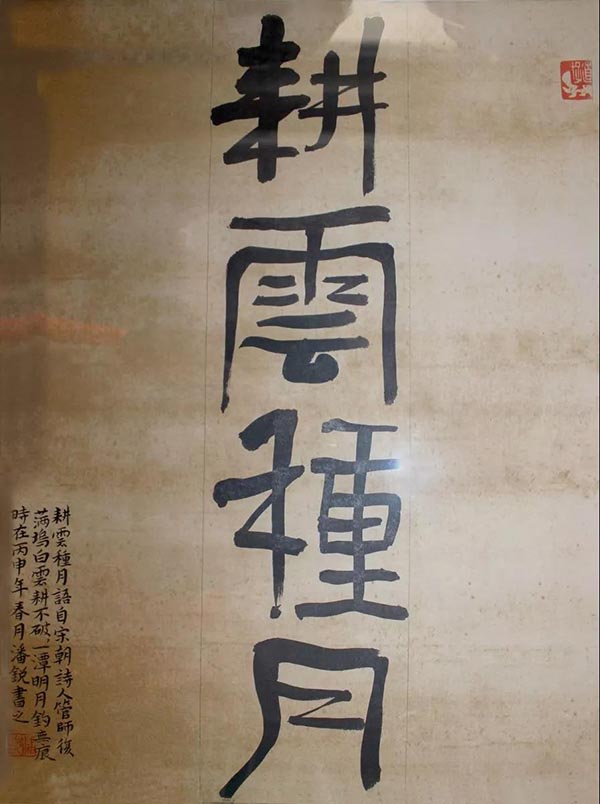 耕雲種月
耕雲種月語自宋朝詩人管師復
满塢白雲耕不破一潭明月釣無痕
時在丙申年春月潘銳書之